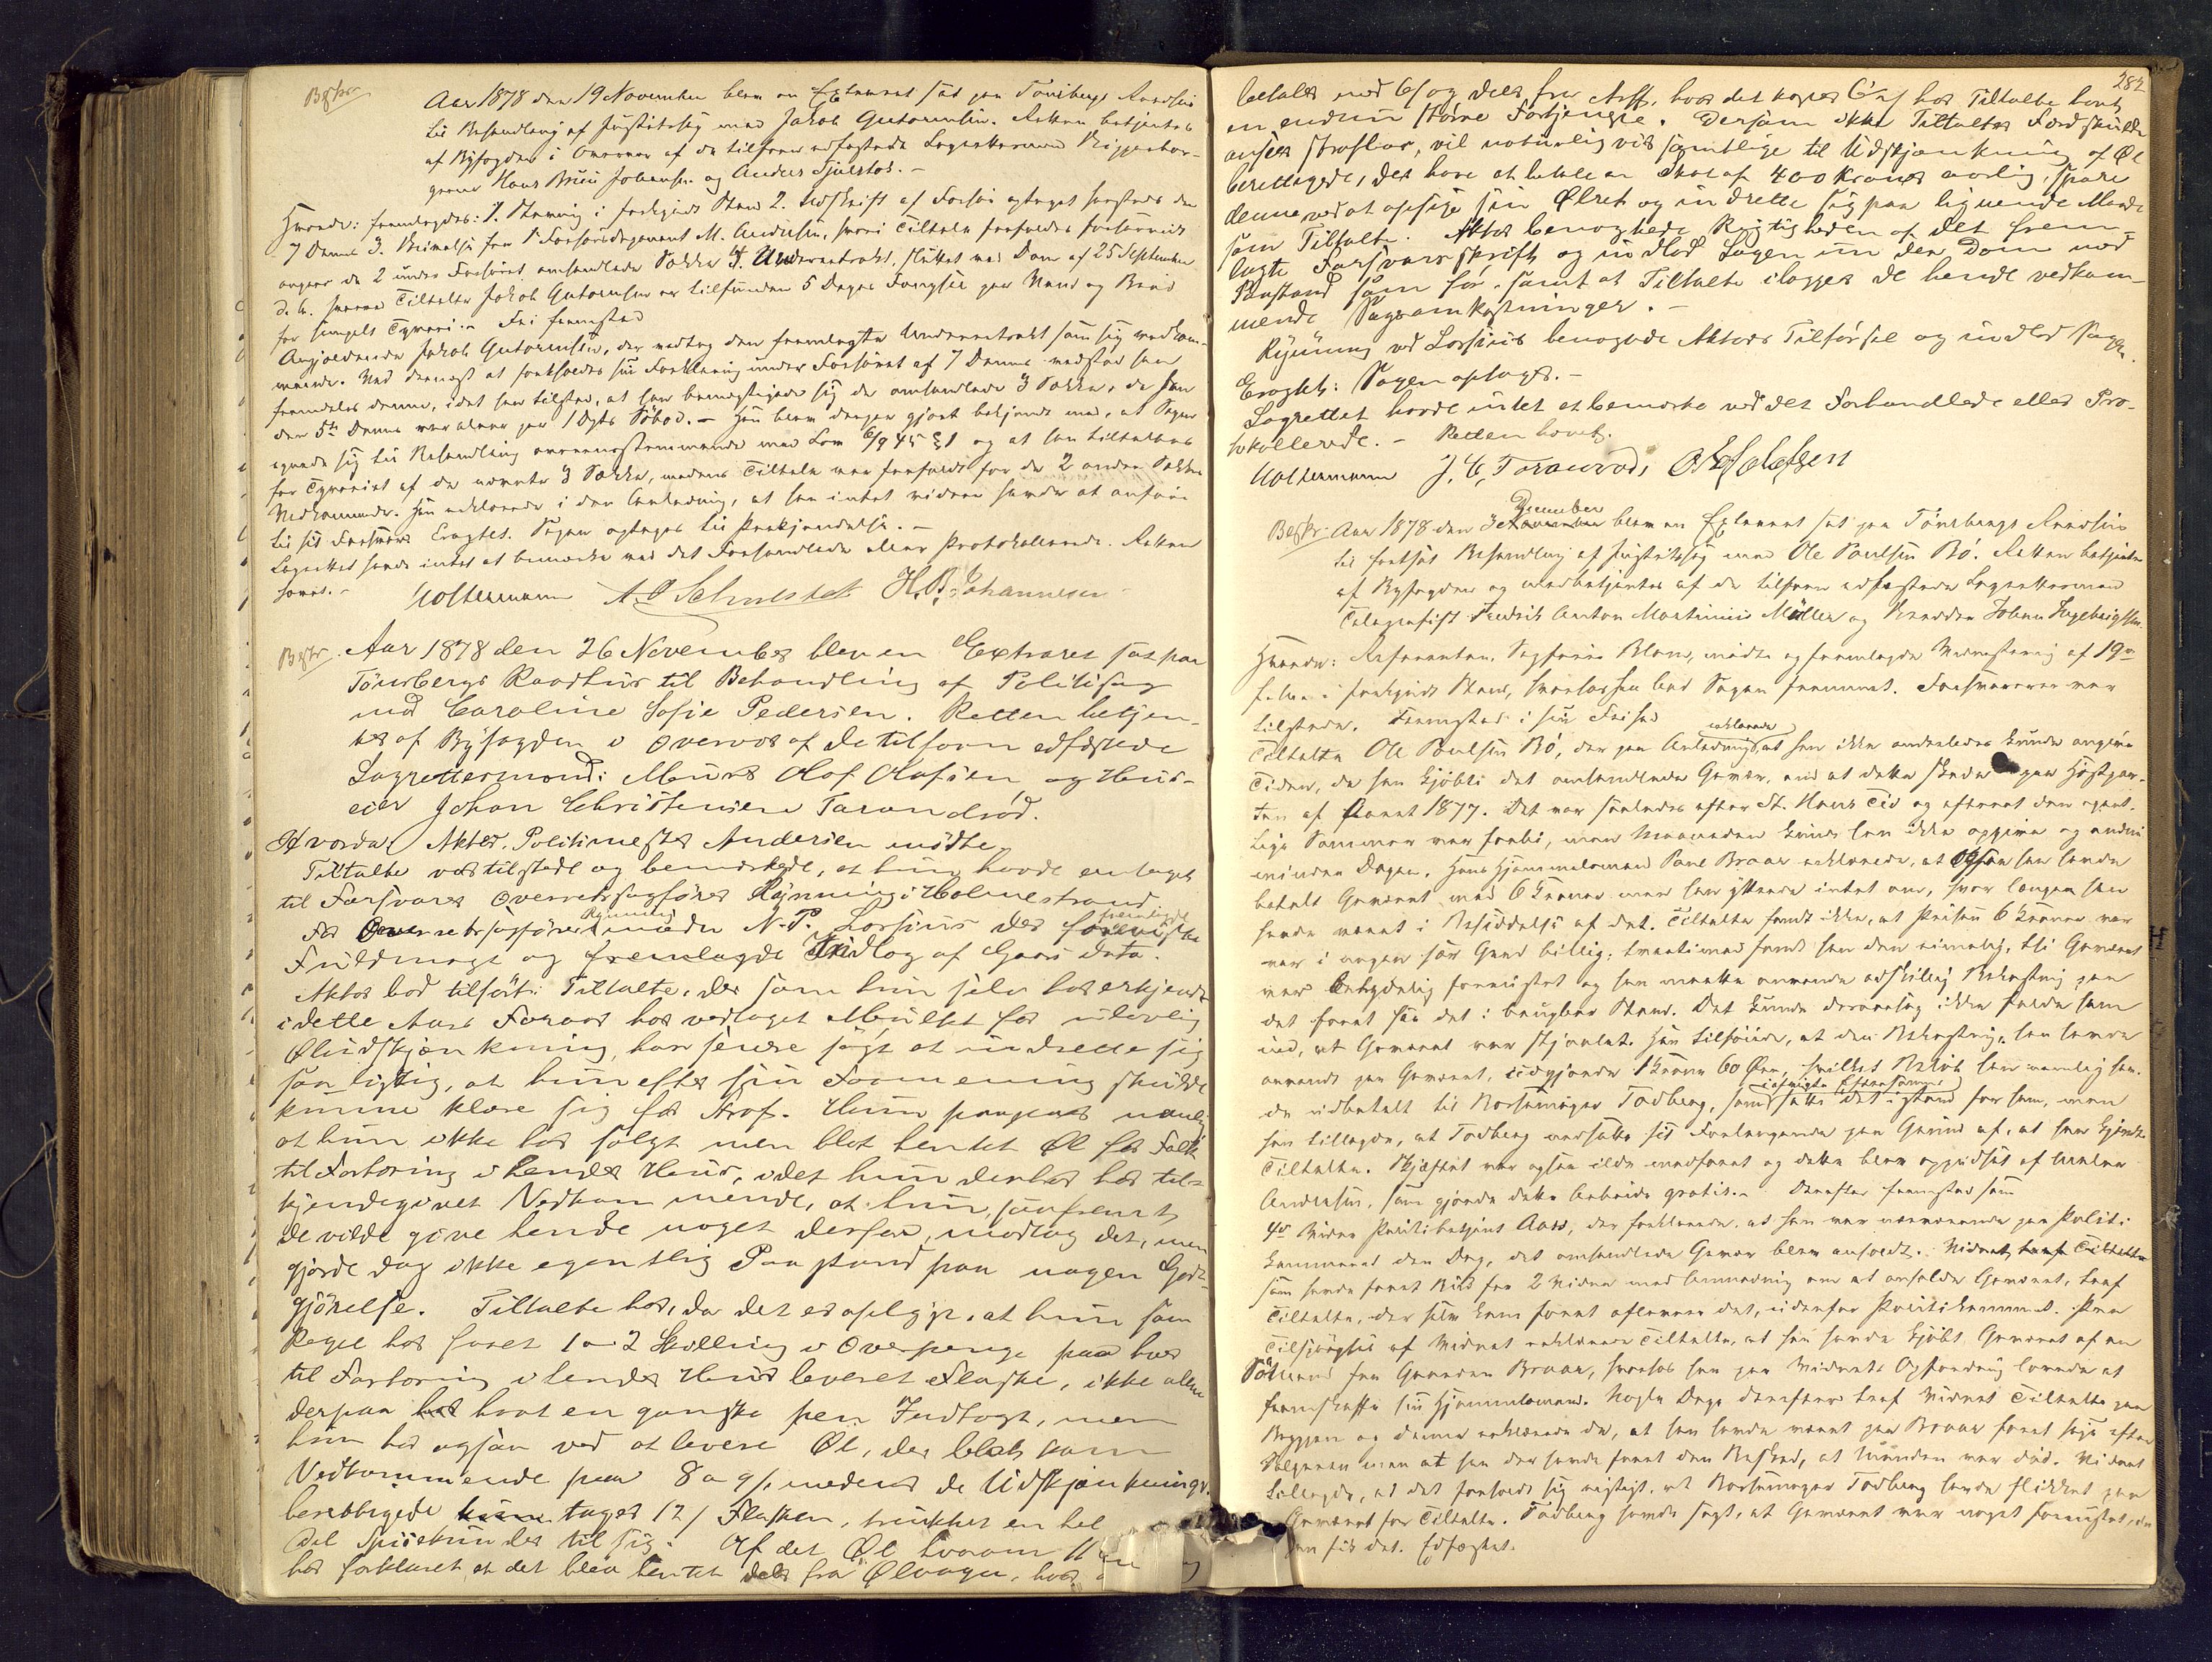 Beskr.
Aar 1878 den 19 November blev en Extraret sat paa Tønsbergs Raadhus
til Behandling af Justitssag mod Jakob Gutormsen. Retten betjentes
af Byfogden i Overvær af de tilforn edfæstede Lagrettesmænd Riggerbor-
gerne Hans Bruu Johansen og Anders Sjulstok. –
Hvorda: fremlagdes: 1. Stævning i forkyndt Stand 2. Udskrift af Forhør optaget her den
7 Dennes 3. Skrivelse fra Forhørsdommeren M. Andersen, hvori Tiltalte frafaldes forsaavidt
angaar de 2 under Forhøret omhandlede Sække 4. Underretsakt, sluttet med Dom af 25 September
d. A. hvorved Tiltalte Jakob Gutormsen er tilfunden 5 Dages Fængsel paa Vand og Brød
for simpelt Tyveri. – Fri fremstod
Angjældende Jakob Gutormsen, der vedtog den fremlagte Underretsakt som sig vedkom-
mende. Ved dernæst at foreholdes sin Forklaring under Forhøret af 7 Dennes vedstod han
fremdeles denne, idet han tilstod, at han bemægtigede sig de omhandlede 3 Sække, da han
den 5te Dennes var alene paa 1 Søbod. – Han blev derpaa gjort bekjendt med, at Sagen
egnede sig til Behandling overensstemmende med Lov 6/9 45 § 1 og at han tiltaltes
for Tyveriet af de nævnte 3 Sække, medens Tiltale var frafaldt for de 2 andre Sækkes
Vedkommende. Han erklærede i den Anledning, at han intet videre havde at anføre
til sit Forsvar. Eragtet. Sagen optages til Paakjendelse. –
Lagrettet havde intet at bemærke ved det Forhandlede eller Protokollerede. Retten
hævet. –
Woltermann A. Schulstok H. B. Johannesen
Beskr.
Aar 1878 den 26 November blev en Extraret sat paa
Tönsbergs Raadhus til Behandling af Politisag
mod Caroline Sofie Pedersen. Retten betjen-
tes af Byfogden i Overvær af de tilforn edfæstede
Lagrettesmænd: Murer Olof Olofsen og Hus-
eier Johan Christensen Tarandrød.
Hvorda: Aktor, Politimester Andersen mødte.
Tiltalte var tilstede og bemærkede, at hun havde antaget
til Forsvarer Overretssagfører Rynning i Holmestrand.
For Overretssagfører Rynning mødte N. P. Lossius der fremlagde
Fuldmagt og fremlagde Indlæg af Gaars Dato.
Aktor lod tilføre: Tiltalte, der som hun selv har erkjendt
i dette Aars Foraar har vedtaget Mulkt for ulovlig
Øludskjænkning, har senere søgt at indrette sig
saa listig, at hun efter sin Formening skulde
kunne klare sig for Straf. Hun paastaar nemlig
at hun ikke har solgt men blot hentet Øl for Folk
til Fortæring i hendes Huus, idet hun derhos har til-
kjendegivet Vedkommende, at hun, saafremt
de vilde give hende noget derfor, modtog det, men
gjorde dog ikke egentlig Paastand paa nogen Godt-
gjørelse. Tiltalte har, da det er oplyst, at hun som
Regel har faaet 1 a 2 Skilling i Overpenge paa hver
til Fortæring i hendes Huus leveret Flaske, ikke alene
derpaa havt en ganske pen Indtægt, men
hun har ogsaa ved at levere Øl, der blot kom
Vedkommende paa 8 a 9 ß, medens de Udskjænknings-
berettigede tager 12 ß Flasken, trukket en hel
Del Spisekunder til sig. Af det Øl hvorom Hun
har forklaret at det blev hentet dels fra Ølvogn, hvor
282
betales med 6 ß og dels fra Arff, hvor det koster har Tiltalte havt
en endnu større Fortjeneste. Dersom ikke Tiltaltes Færd skulde
ansees strafbar, vil naturligvis samtlige til Udskjænkning af Øl
berettigede, der have at betale en Skat af 400 Kroner aarlig, spare
denne ved at opsige sin Ølret og indrette sig paa lignende Maade
som Tiltalte. Aktor benægtede Rigtigheden af det frem-
lagte Forsvarsskrift og indlod Sagen under Doms ned
Paastand som før, samt at Tiltalte ilægges de hende vedkom-
mende Sagsomkostninger. –
Rynning ved Lossius benægtede Aktors Tilførsel og indlod Sagen.
Eragtet: Sagen optaget. –
Lagrettet havde intet at bemærke ved det Forhandlede eller Pro-
tokollerede. – Retten hævet.
Woltermann J. C. Taranrod, O. Olofsen
Beskr. Aar 1878 den 3 December blev en Extraret sat paa Tønsbergs Raadhus
til fortsat Behandling af Justitssag mod Ole Paulsen Bö. Retten betjentes
af Byfogden og medbetjentes af de tilforn edfæstede Lagrettesmænd
Telegrafist Fredrik Anton Martinius Müller og Kræmmer Johan Ingebrigtsen.
Hvorda: Referenten, Sagfører Blom, mødte og fremlagde Vidnestævning af 19de
f. M. i forkyndt Stand, hvorefter han bad Sagen fremmet. Forsvareren var
tilstede. Fremstod i sin Frihed
Tiltalte Ole Paulsen Bö, der paa Anledning erklærede at han ikke anderledes kunde angive
Tiden, da han kjøbte det omhandlede Gevær, end at dette skede paa Høstpar-
ten af Aaret 1877. Det var saaledes efter St. Hans Tid og efterat den egent-
lige Sommer var forbi, men Maaneden kunde han ikke opgive og endnu
mindre Dagen. Hans Hjemmelsmand Paul Braar erklærede, at han havde
betalt Geværet med 6 Kroner men han yttrede intet om, hvor længe han
havde været i Besiddelse af det. Tiltalte fandt ikke, at Prisen 6 Kroner var
var i nogen sær Grad billig, tvertimod fandt han den rimelig, thi Geværet
var betydelig forrustet og han maatte anvende adskillig Bekostning paa
det forat faa det i brugbar Stand. Det kunde derforuden ikke falde ham
ind, at Geværet var stjaalet. Han tilføiede, at den Bekostning, han havde
anvendt paa Geværet, udgjorde 1 Krone 60 Øre, hvilket Beløb han nemlig hav-
de udbetalt til Børsemager Todberg, som satte det istand for ham, men
han tillagde, at Todberg nedsatte sit Forlangende paa Grund af, at han kjendte
Tiltalte. Skjæftet var ogsaa ilde medfaret og dette blev oppudset af Maler
Andersen, som gjorde dette Arbeide gratis. – Derefter fremstod som
4de Vidne Politibetjent Aass, der forklarede, at han var nærværende paa Politi-
kammeret den Dag, det omhandlede Gevær blev anholdt. Vidnet traf Tiltalte
som havde faaet Bud fra 2 Vidne med Anmodning om at anholde Geværet, traf
Tiltalte, der selv kom forat aflevere det, udenfor Politikammeret. Paa
Tilspørgsel af Vidnet erklærede Tiltalte, at han havde kjøbt Geværet af en
Mand fra Gaarden Braar, hvorhos han paa Vidnets Opfordring lovede at
fremskaffe sin Hjemmelsmand. Nogle Dage derefter traf Vidnet Tiltalte paa
Bryggen og denne erklærede da, at han havde været paa Braar forat søge efter
Sælgeren men at han der havde faaet den Besked, at Manden var död. Vidnet
tillagde, at det forholdt sig rigtigt, at Børsemager Todberg havde flikket paa
Geværet for Tiltalte. Todberg havde sagt, at Geværet var noget forrustet, da
han fik det. Edfæstet.